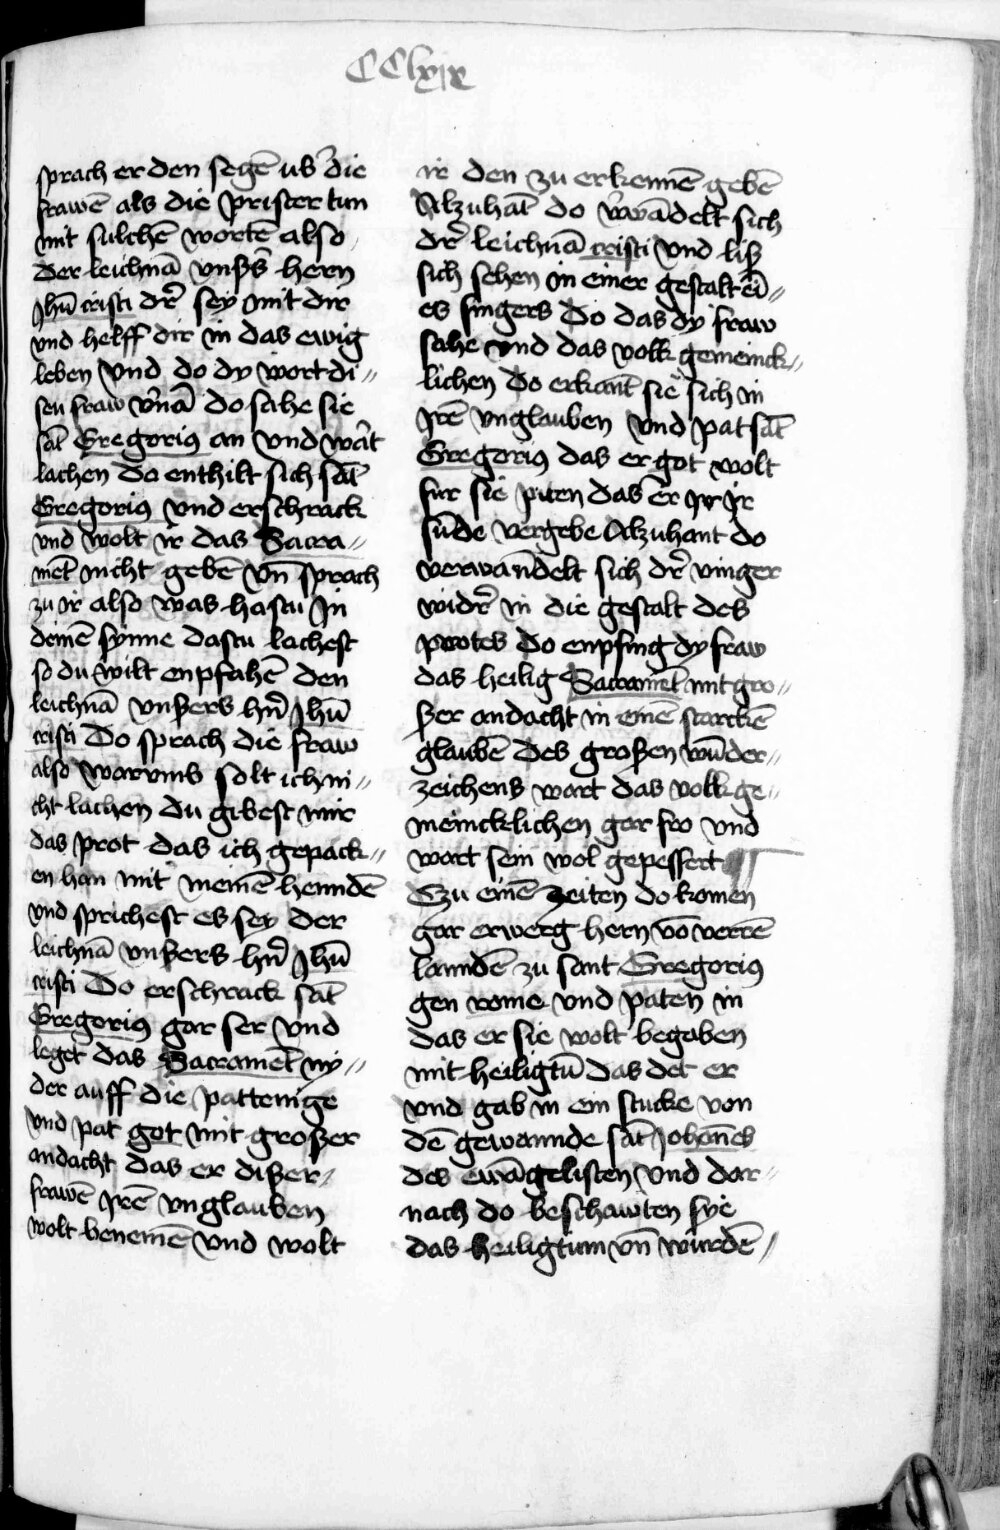 CClxix
sprach er den segē ub̕ die
frawē als die prister tun
mit sulchē wortē also
der leichnā vnßs̕ hern
Jhū cristi dr̕ sey mit dir
vnd helff dir in das ewig
leben Vnd do dy wort di〃
seu fraw v̕nā do sahe sie
sāt Gregorius an vnd wāt
lachen do enthilt sich sāt
Gregorius vnd erschrack
vnd wolt ir das Sacra〃
mēt nicht gebē vn̄ sprach
zu ir also was hastu Jn
deinē synne dastu lachest
so du wilt enpfahē den
leichnā vnßers hn̄ Jhū
cristi Do sprach die fraw
also warvmb solt ich ni〃
cht lachen du gibest mir
das prot das ich gepack〃
en han mit meinē hennden
vnd sprichest es sey der
leichnā vnßers hn̄ Jhū
cristi Do erschrack sāt
Gregorius gar ser vnd
leget das Sacramēt ny〃
der auff die pattenige
vnd pat got mit großer
andacht das er dißer
frawē Jrē vnglauben
wolt benemē vnd wolt
ir den zu erkennē gebē
Alzuhāt do v̕wādelt sich
dr̕ leichnā cristi vnd liß
sich sehen in einer gestalt ei〃
es fingers Do das dy fraw
sahe vnd das volk gemeinck〃
lichen Do erkant sie sich in
Jrē vnglauben vnd pat sāt
Gregorius das er got wolt
fur sie piten das er ir Jr
sūde vergebe Alzuhant do
verwanndelt sich dr̕ vinger
widr̕ in die gestalt des
protes Do enpfing dy fraw
das heilig Sacramēt mit gro〃
ßer andacht in einē starckē
glaubē des großen wūder〃
zeichens wart das volk ge〃
meincklichen gar fro vnd
wart sein wol gepessert
Czu einē zeiten do komen
gar erwerg hern vō verrē
lanndē zu sant Gregorius
gen rome vnd paten in
das er sie wolt begaben
mit heiligtū das det er
vnd gab in ein stucke von
dē gewannde sāt Johānes
des ewāgelisten vnd dar〃
nach do beschawten sye
das heiligtum vn̄ wurdē〃